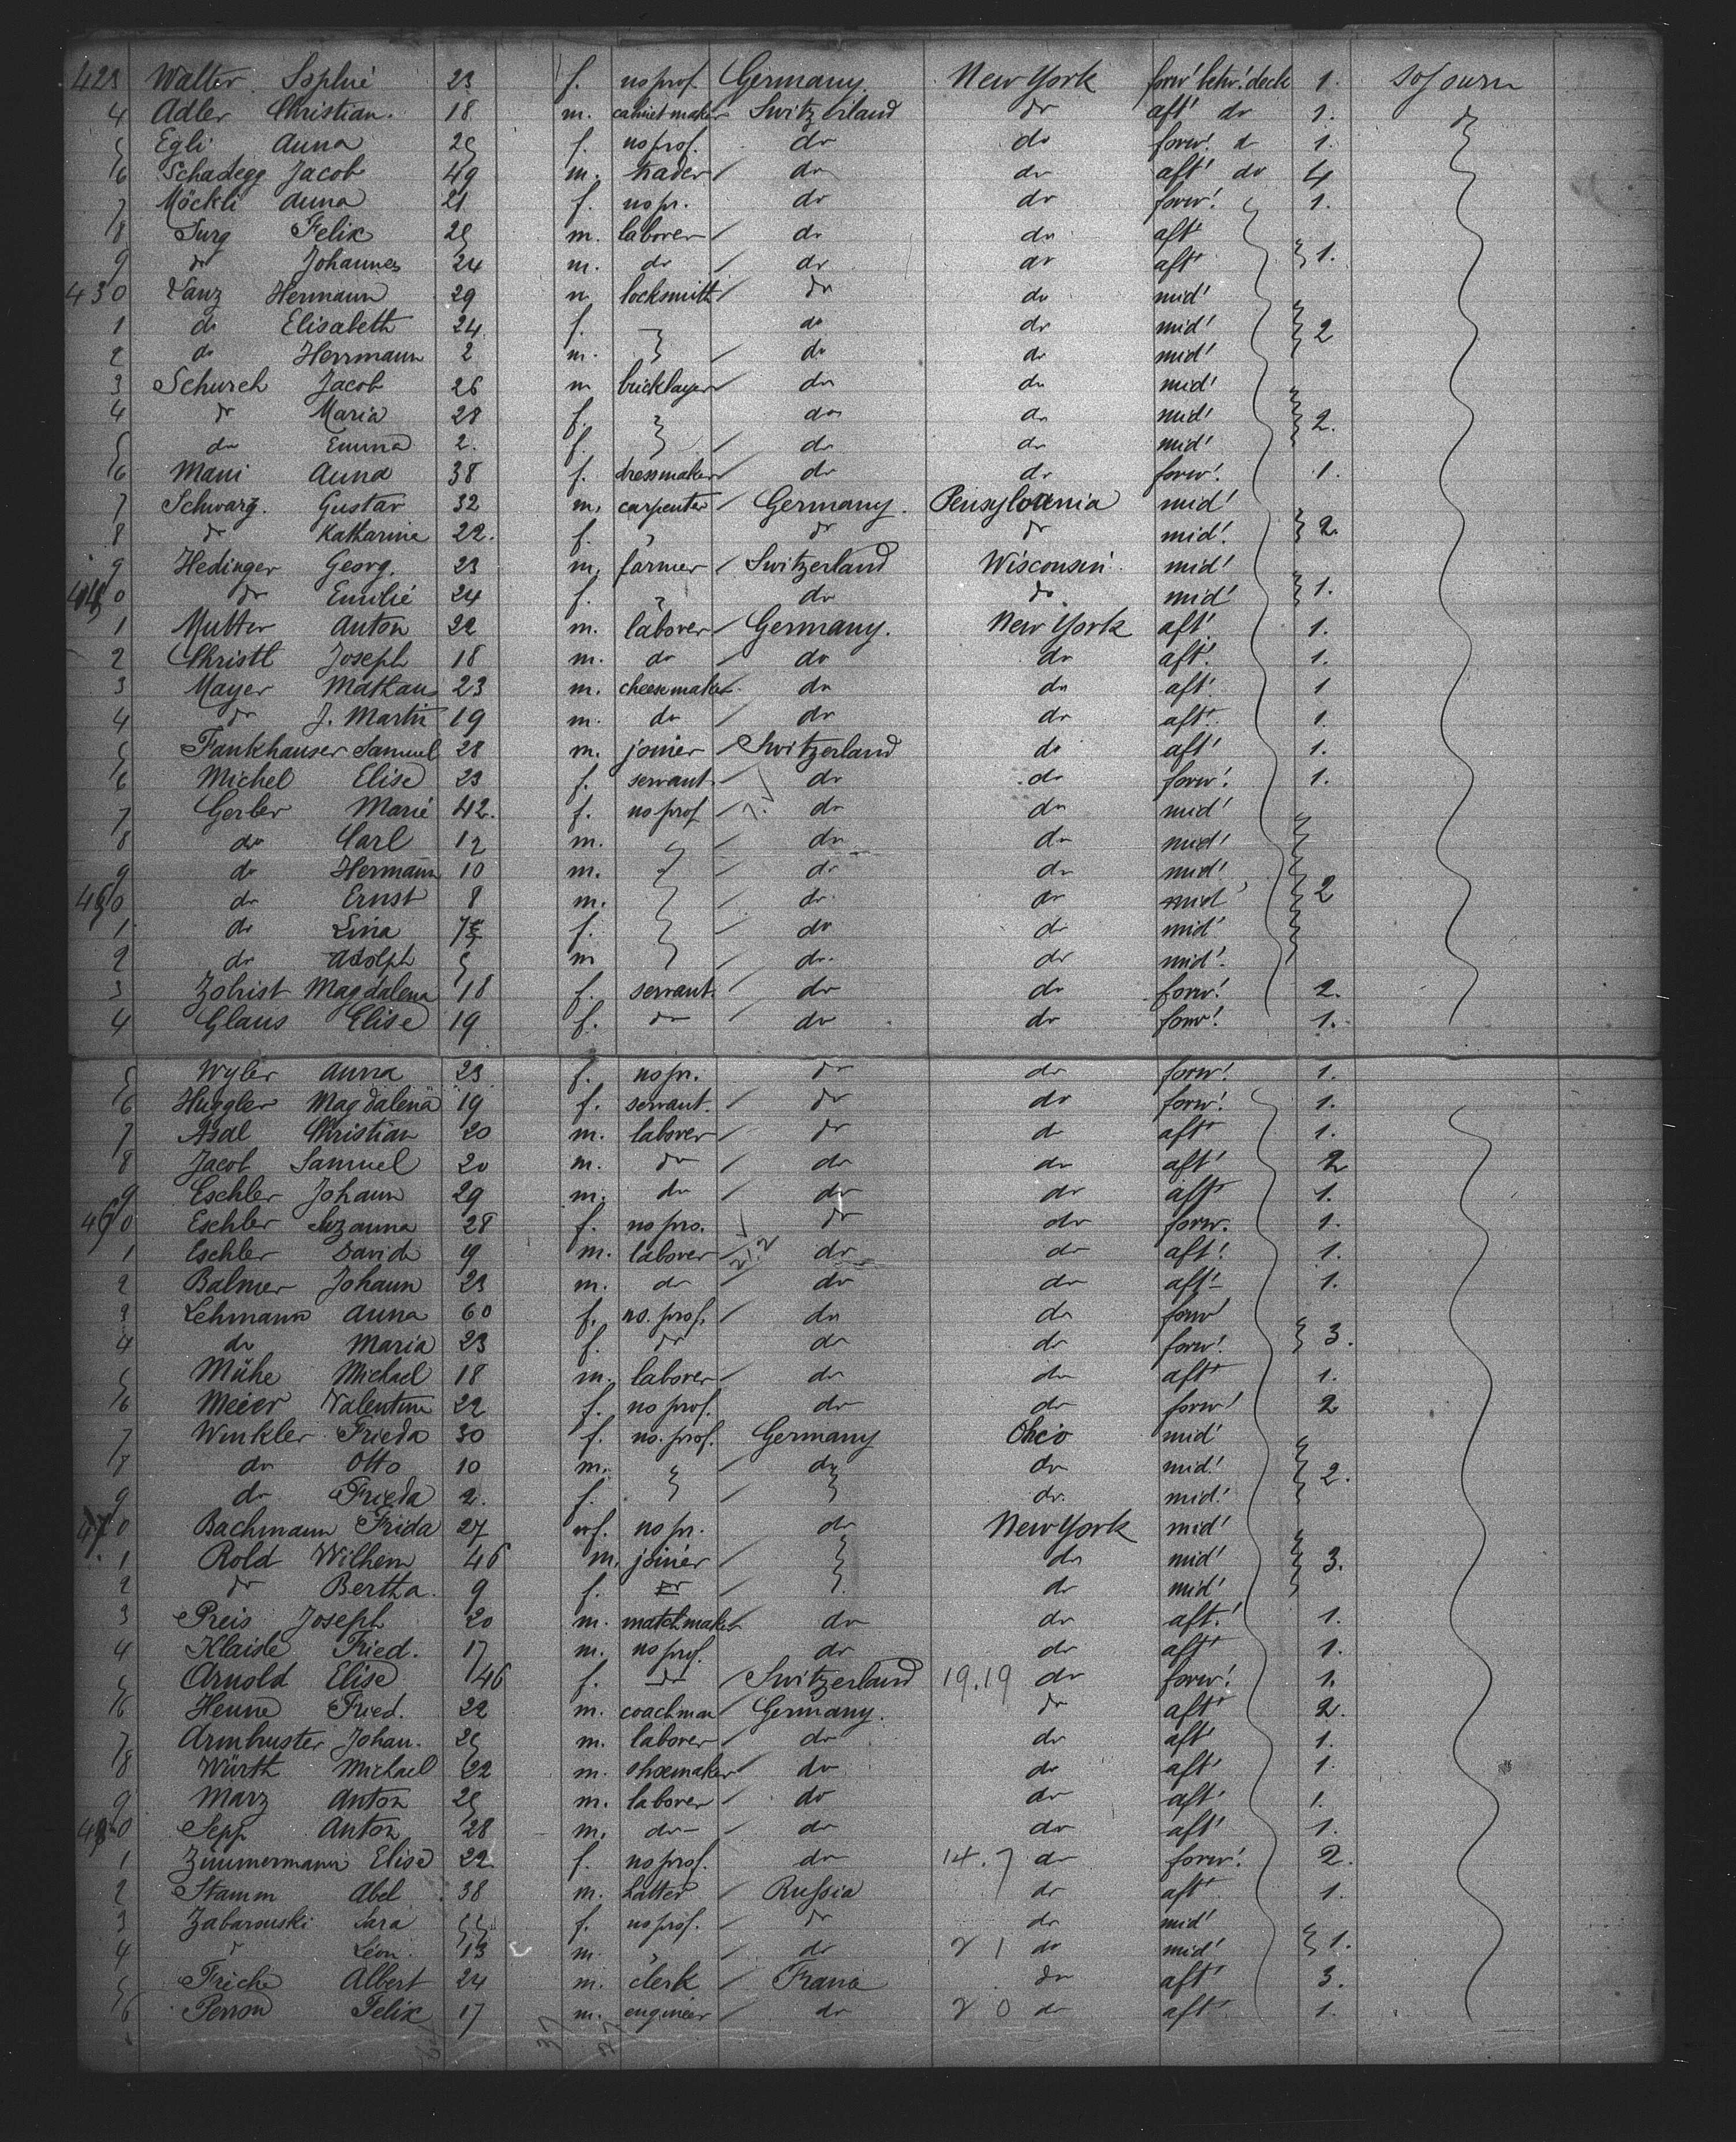 423 Walter Sophie 23 f. no prof. Germany. New York forw' betw. deck 1. sojourn
4 Adler Christian. 18 m. cabinetmaker Switzerland do aft' do 1. do
5 Egli Anna 25 f. no prof. do do forw! do 1.
6 Schadegg Jacob 49 m. trader do do aft' do 4
7 Möckli Anna 21 f. no pr. do do forw! 1.
8 Surg Felix 25 m. laborer do do aft'
9 do Johannes 24 m. do do do aft' 1.
430 Lanz Hermann 29 m locksmith do do mid'
1 do Elisabeth 24 f. do do mid' 2
2 do Herrmann 2 m. do do mid'
3 Schurch Jacob 26 m bricklayer do do mid'
4 do Maria 28 f. do do mid' 2.
5 do Emma 2. f. do do mid'
6 Mani Anna 38 f. dressmaker do do forw! 1.
7 Schwarz. Gustav 32 m. carpenter Germany. Pensylvania mid'
8 do Katharine 22. f. do do mid! 2.
9 Hedinger Georg. 23 m. farmer Switzerland Wisconsin mid'
440 do Emilie 24 f. do do mid' 1.
1 Mutter Anton 22 m. laborer Germany. New York aft' 1.
2 Christl Joseph 18 m. do do do aft! 1.
3 Mayer Mathaus 23 m. cheesemaker do do aft! 1
4 do J. Martin 19 m. do do do aft! 1.
5 Fankhauser Samuel 28 m. joiner Switzerland do aft' 1.
6 Michel Elise 23 f. servant do do forw! 1.
7 Gerber Marie 42. f. no prof do do mid'
8 do Carl 12 m. do do mid'
9 do Hermann 10 m. do do mid!
450 do Ernst 8 m. do do mid' 2
1 do Lina 7 f. do do mid'
2 do Adolph 5 m do. do mid'.
3 Zobrist Magdalena 18 f. servant do do forw! 2.
4 Glaus Elise 19 f. do do do forw! 1.
5 Wyler Anna 23 f. no pr. do do forw! 1.
6 Huggler Magdalena 19 f. servant. do do forw! 1.
7 Asal Christian 20 m. laborer do do aft' 1.
8 Jacob Samuel 20 m. do do do aft' 2
9 Eschler Johann 29 m. do do do aft' 1.
460 Eschler Suzanna 28 f. no pro. do do forw. 1.
1 Eschler David 19 m. laborer do do aft! 1.
2 Balmer Johann 23 m. do do do aft' 1.
3 Lehmann Anna 60 f. no. prof. do do forw'
4 do Maria 23 f. do do do forw! 3.
5 Mühe Michael 18 m. laborer do do aft' 1.
6 Meier Valentine 22 f. no prof. do do forw' 2
7 Winkler Frieda 30 f. no. prof. Germany Ohio mid'
8 do Otto 10 m. do do mid! 2.
9 do Frieda 2. f. do. mid!
470 Bachmann Frida 27 f. no pr. do New York mid'
1 Rold Wilhem 46 m. joiner do mid' 3.
2 do Bertha. 9 f. do mid'
3 Preis Joseph 20 m. matchmaker do do aft! 1.
4 Klaisle Fried. 17 m. no prof. do do aft' 1.
5 Arnold Elise 46 f. do Switzerland 19.19 do forw! 1.
6 Henne Fried. 22 m. coachman Germany. do aft' 2.
7 Armbruster Johan. 25 m. laborer do do aft' 1.
8 Würth Michael 22 m. shoemaker do do aft' 1.
9 Marz Anton 25 m. laborer do do aft' 1.
480 Sepp Anton 28 m. do do do aft' 1.
1 Zimmermann Elise 22. f. no prof. do 14.7 do forw! 2.
2 Stamm Abel 38 m. hatter Russia do aft' 1.
3 Zabarouski Sara 55 f. no prof. do do mid'
4 Léon. 13 m. do 2 1 do mid' 1.
5 Friche Albert 24 m. clerk France do aft' 3.
6 Perron Felix 17 m. engineer do 2 0 do aft' 1.
37 27